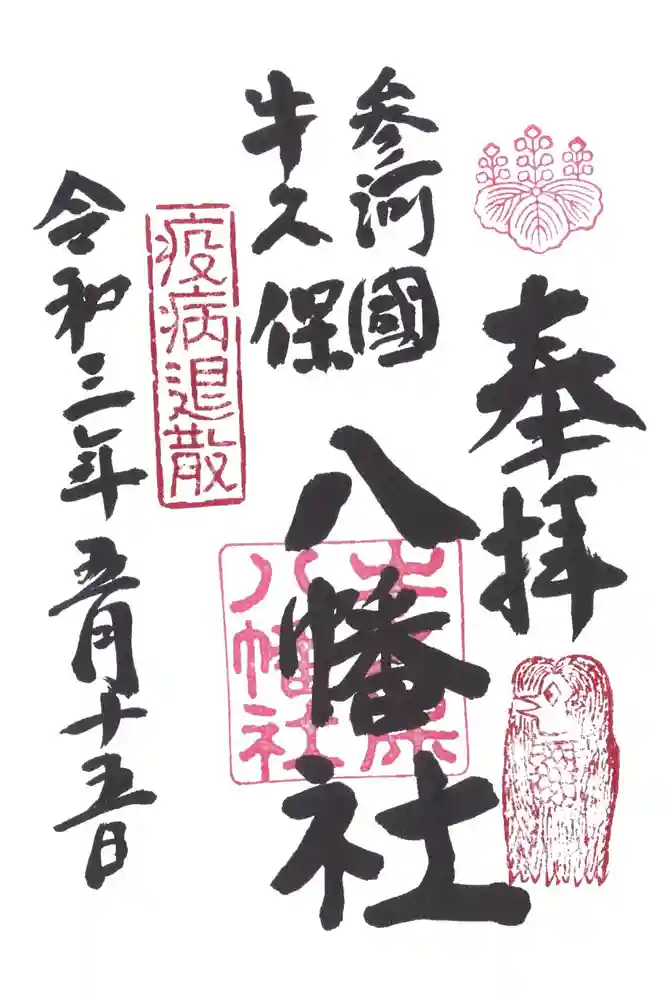 奉拝
参河國
牛久保
八幡社
疫病退散
令和三年五月十五日
八幡社